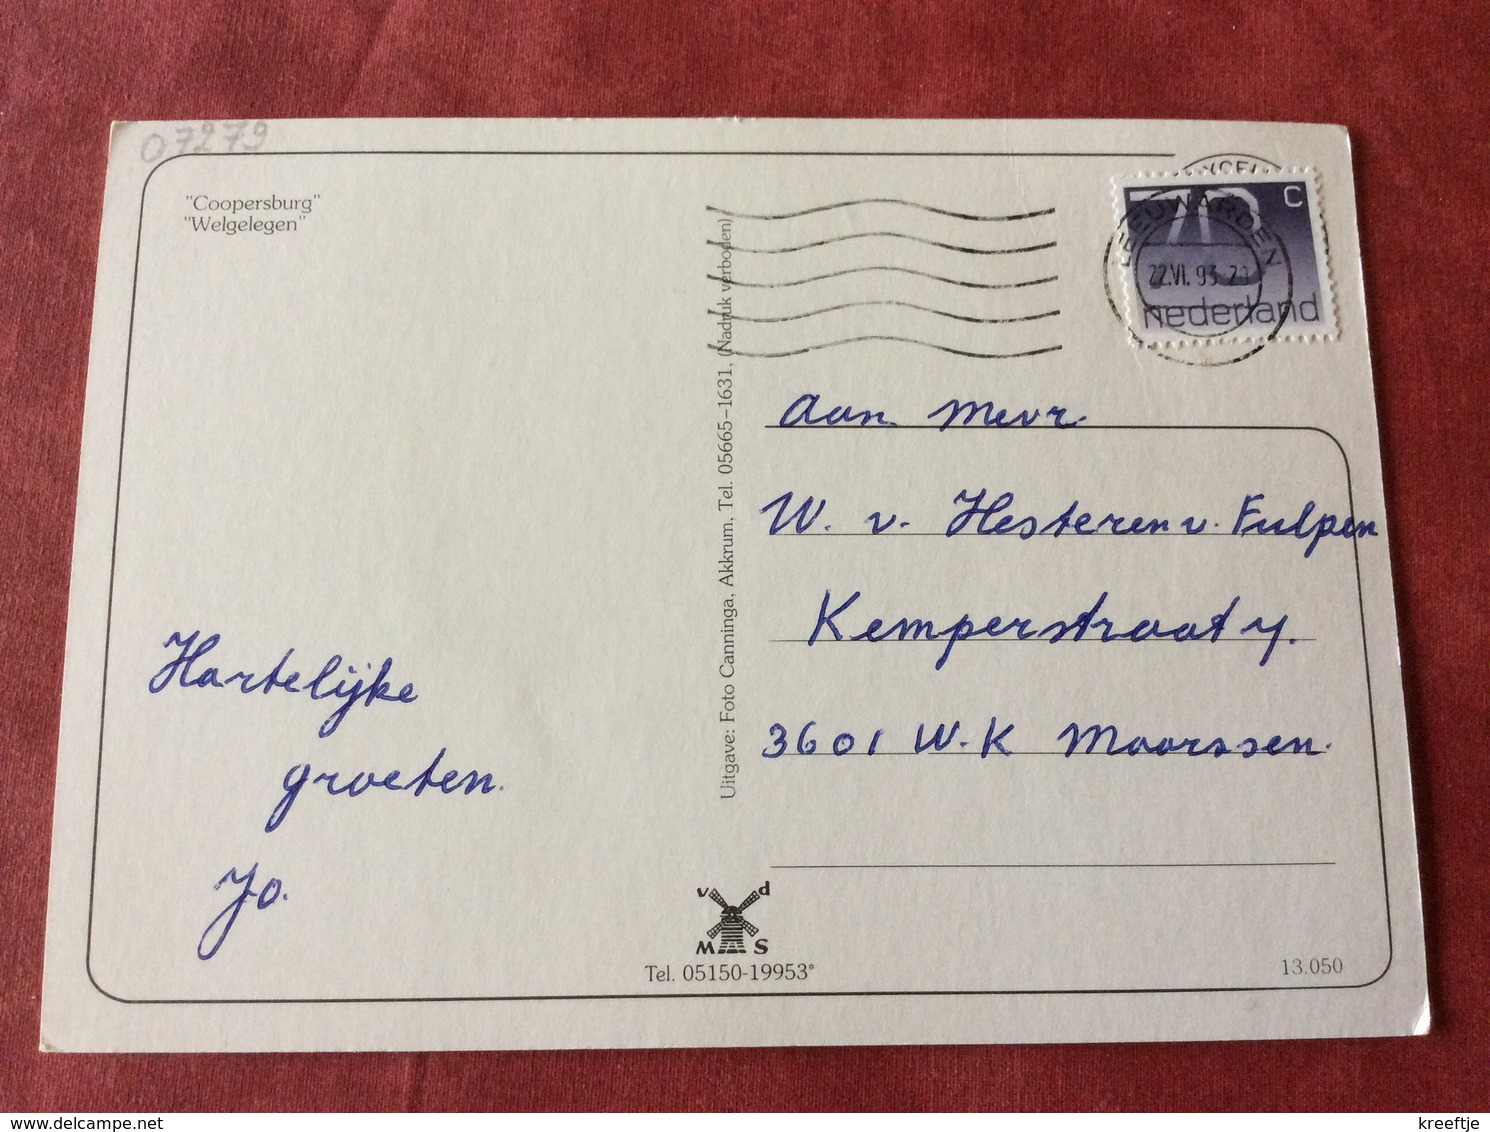 07279
"Coopersburg"
"Welgelegen"
70 c
LEEUWARDEN
22.VI.93 20
nederland
Uitgave: Foto Canninga, Akkrum, Tel. 05665-1631, (Nadruk verboden)
Aan Mevr.
W. v. Hesteren v. Fulpen
Kemperstraat 4.
3601 W.K Maarssen.
Hartelijke
groeten.
Jo.
v d
M S
Tel. 05150-19953*
13.050
© delcampe.net
kreeftje